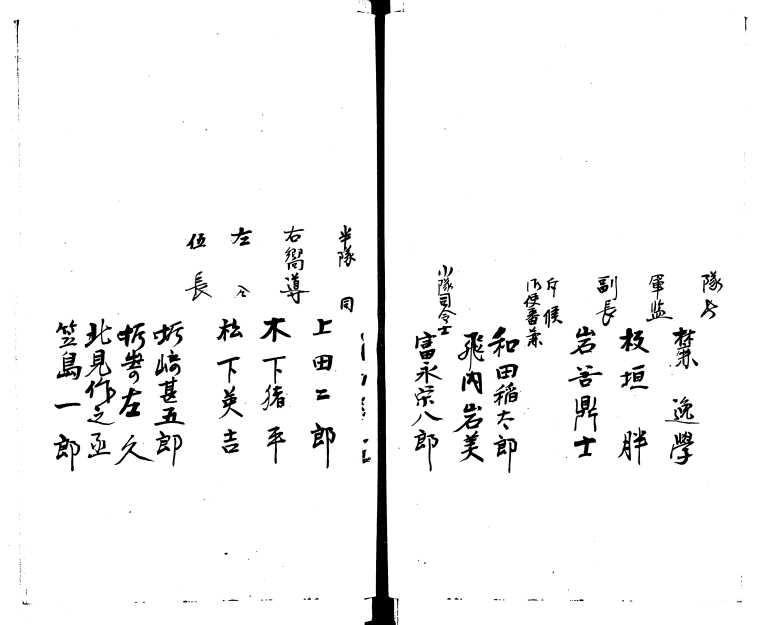 隊長
逸學
軍監
板垣胖
副長
岩善鼎士
斥候
使番兼
和田稲太郎
飛内岩美
小隊司令士
富永栄八郎
半隊 同
上田二郎
右嚮導
木下猪平
左 仝
松下美吉
伍長
折崎甚五郎
左久
北見作之丞
笠島一郎